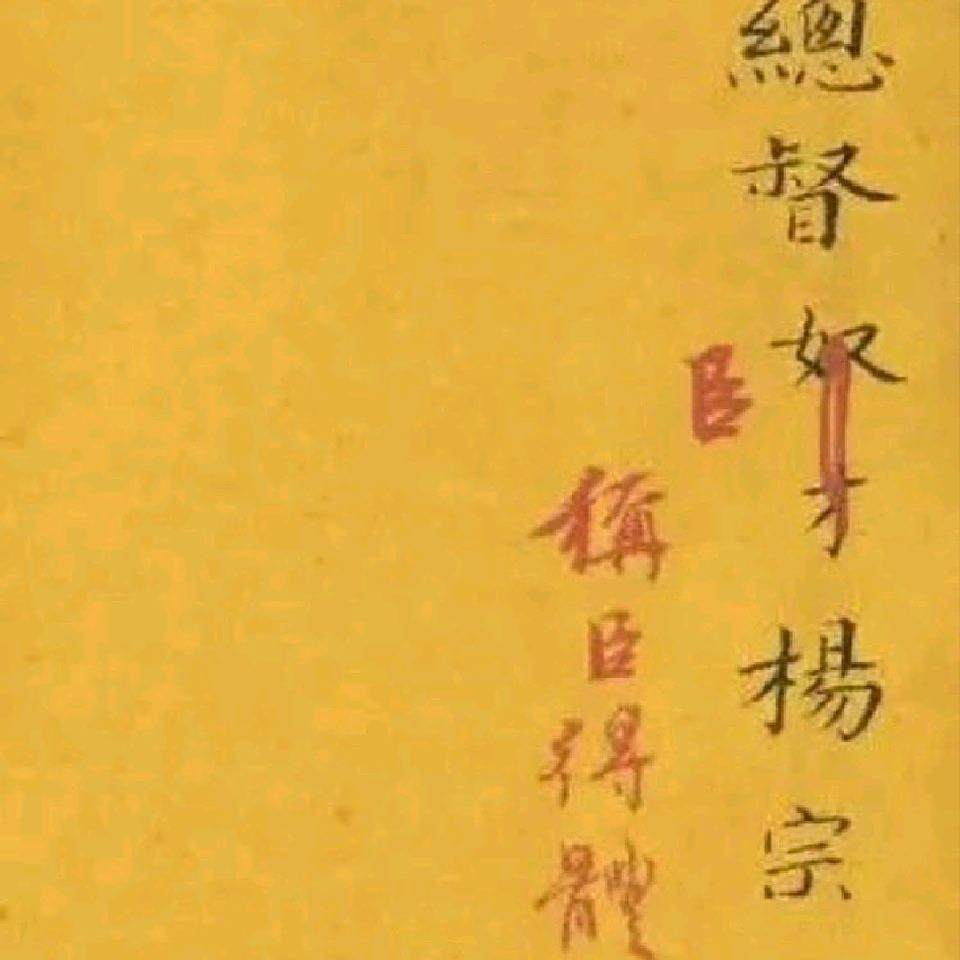 總督奴才楊宗
臣
稱臣得體